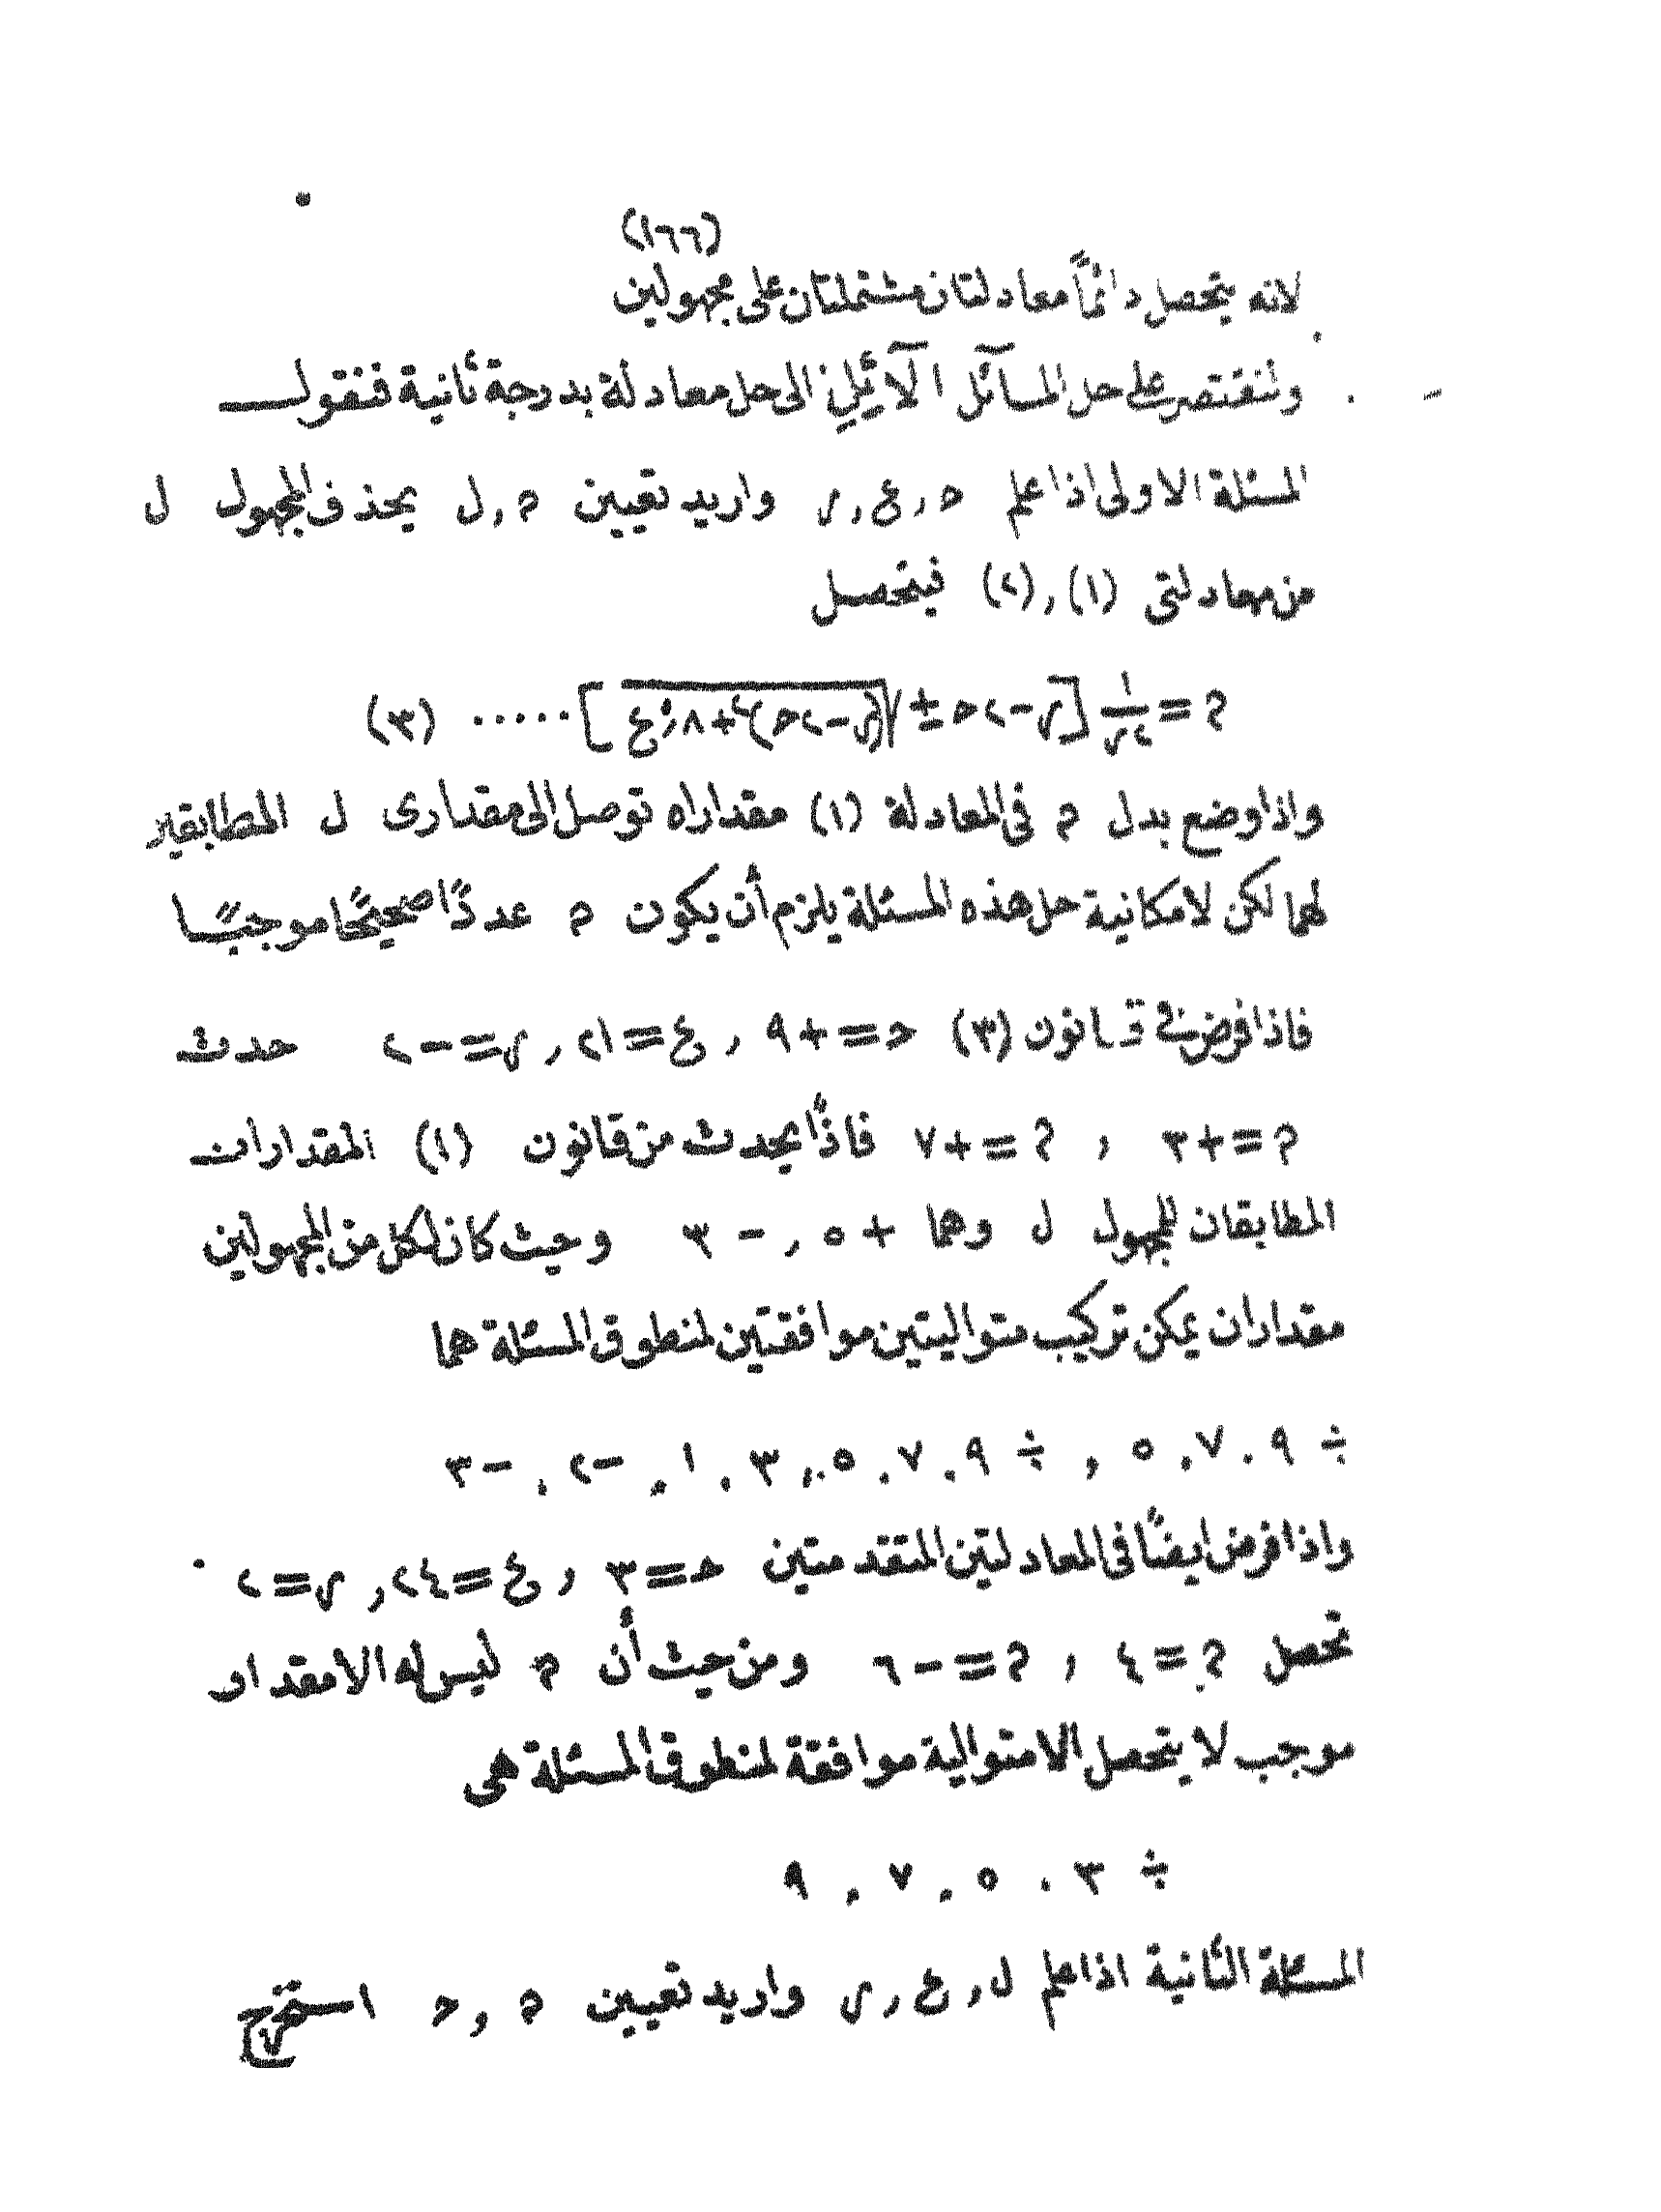 (١٦٦)
لانه يتحصل دائماً معادلتان مشتملتان على مجهولين
ولنقتصر على حل المسائل الآئلين الى حل معادلة بدرجة ثانية فنقول
المسئلة الاولى اذا علم ح , ع , ر واريد تعيين م , ل يحذف المجهول ل
من معادلتى (١) , (٢) فيتحصل
م = ١/٢ر [ر − ٢ح ± √(ر − ٢ح)٢ + ٨رع] ..... (٣)
واذا وضع بدل م فى المعادلة (١) مقداراه توصل الى مقدارى ل المطابقين
لهما لكن لامكانية حل هذه المسئلة يلزم أن يكون م عددًا صحيحًا موجبًا
فاذا فرض فى قانون (٣) ح = + ٩ , ع = ٢١ , ر = − ٢ حدث
م = + ٣ , م = + ٧ فاذًا يحدث من قانون (١) المقداران
المطابقان للمجهول ل وهما + ٥ , − ٣ وحيث كان لكل من المجهولين
مقداران يمكن تركيب متواليتين موافقتين لمنطوق المسئلة هما
÷ ٩ . ٧ . ٥ , ÷ ٩ . ٧ . ٥ . ٣ . ١ . −٢ . −٣
واذا فرض ايضًا فى المعادلتين المتقدمتين ح = ٣ , ع = ٢٤ , ر = ٢
تحصل م = ٤ , م = − ٦ ومن حيث أن م ليس له الا مقدار
موجب لا يتحصل الا متوالية موافقة لمنطوق المسئلة هى
÷ ٣ . ٥ . ٧ . ٩
المسئلة الثانية اذا علم ل , ع , ر واريد تعيين م , ح استخرج